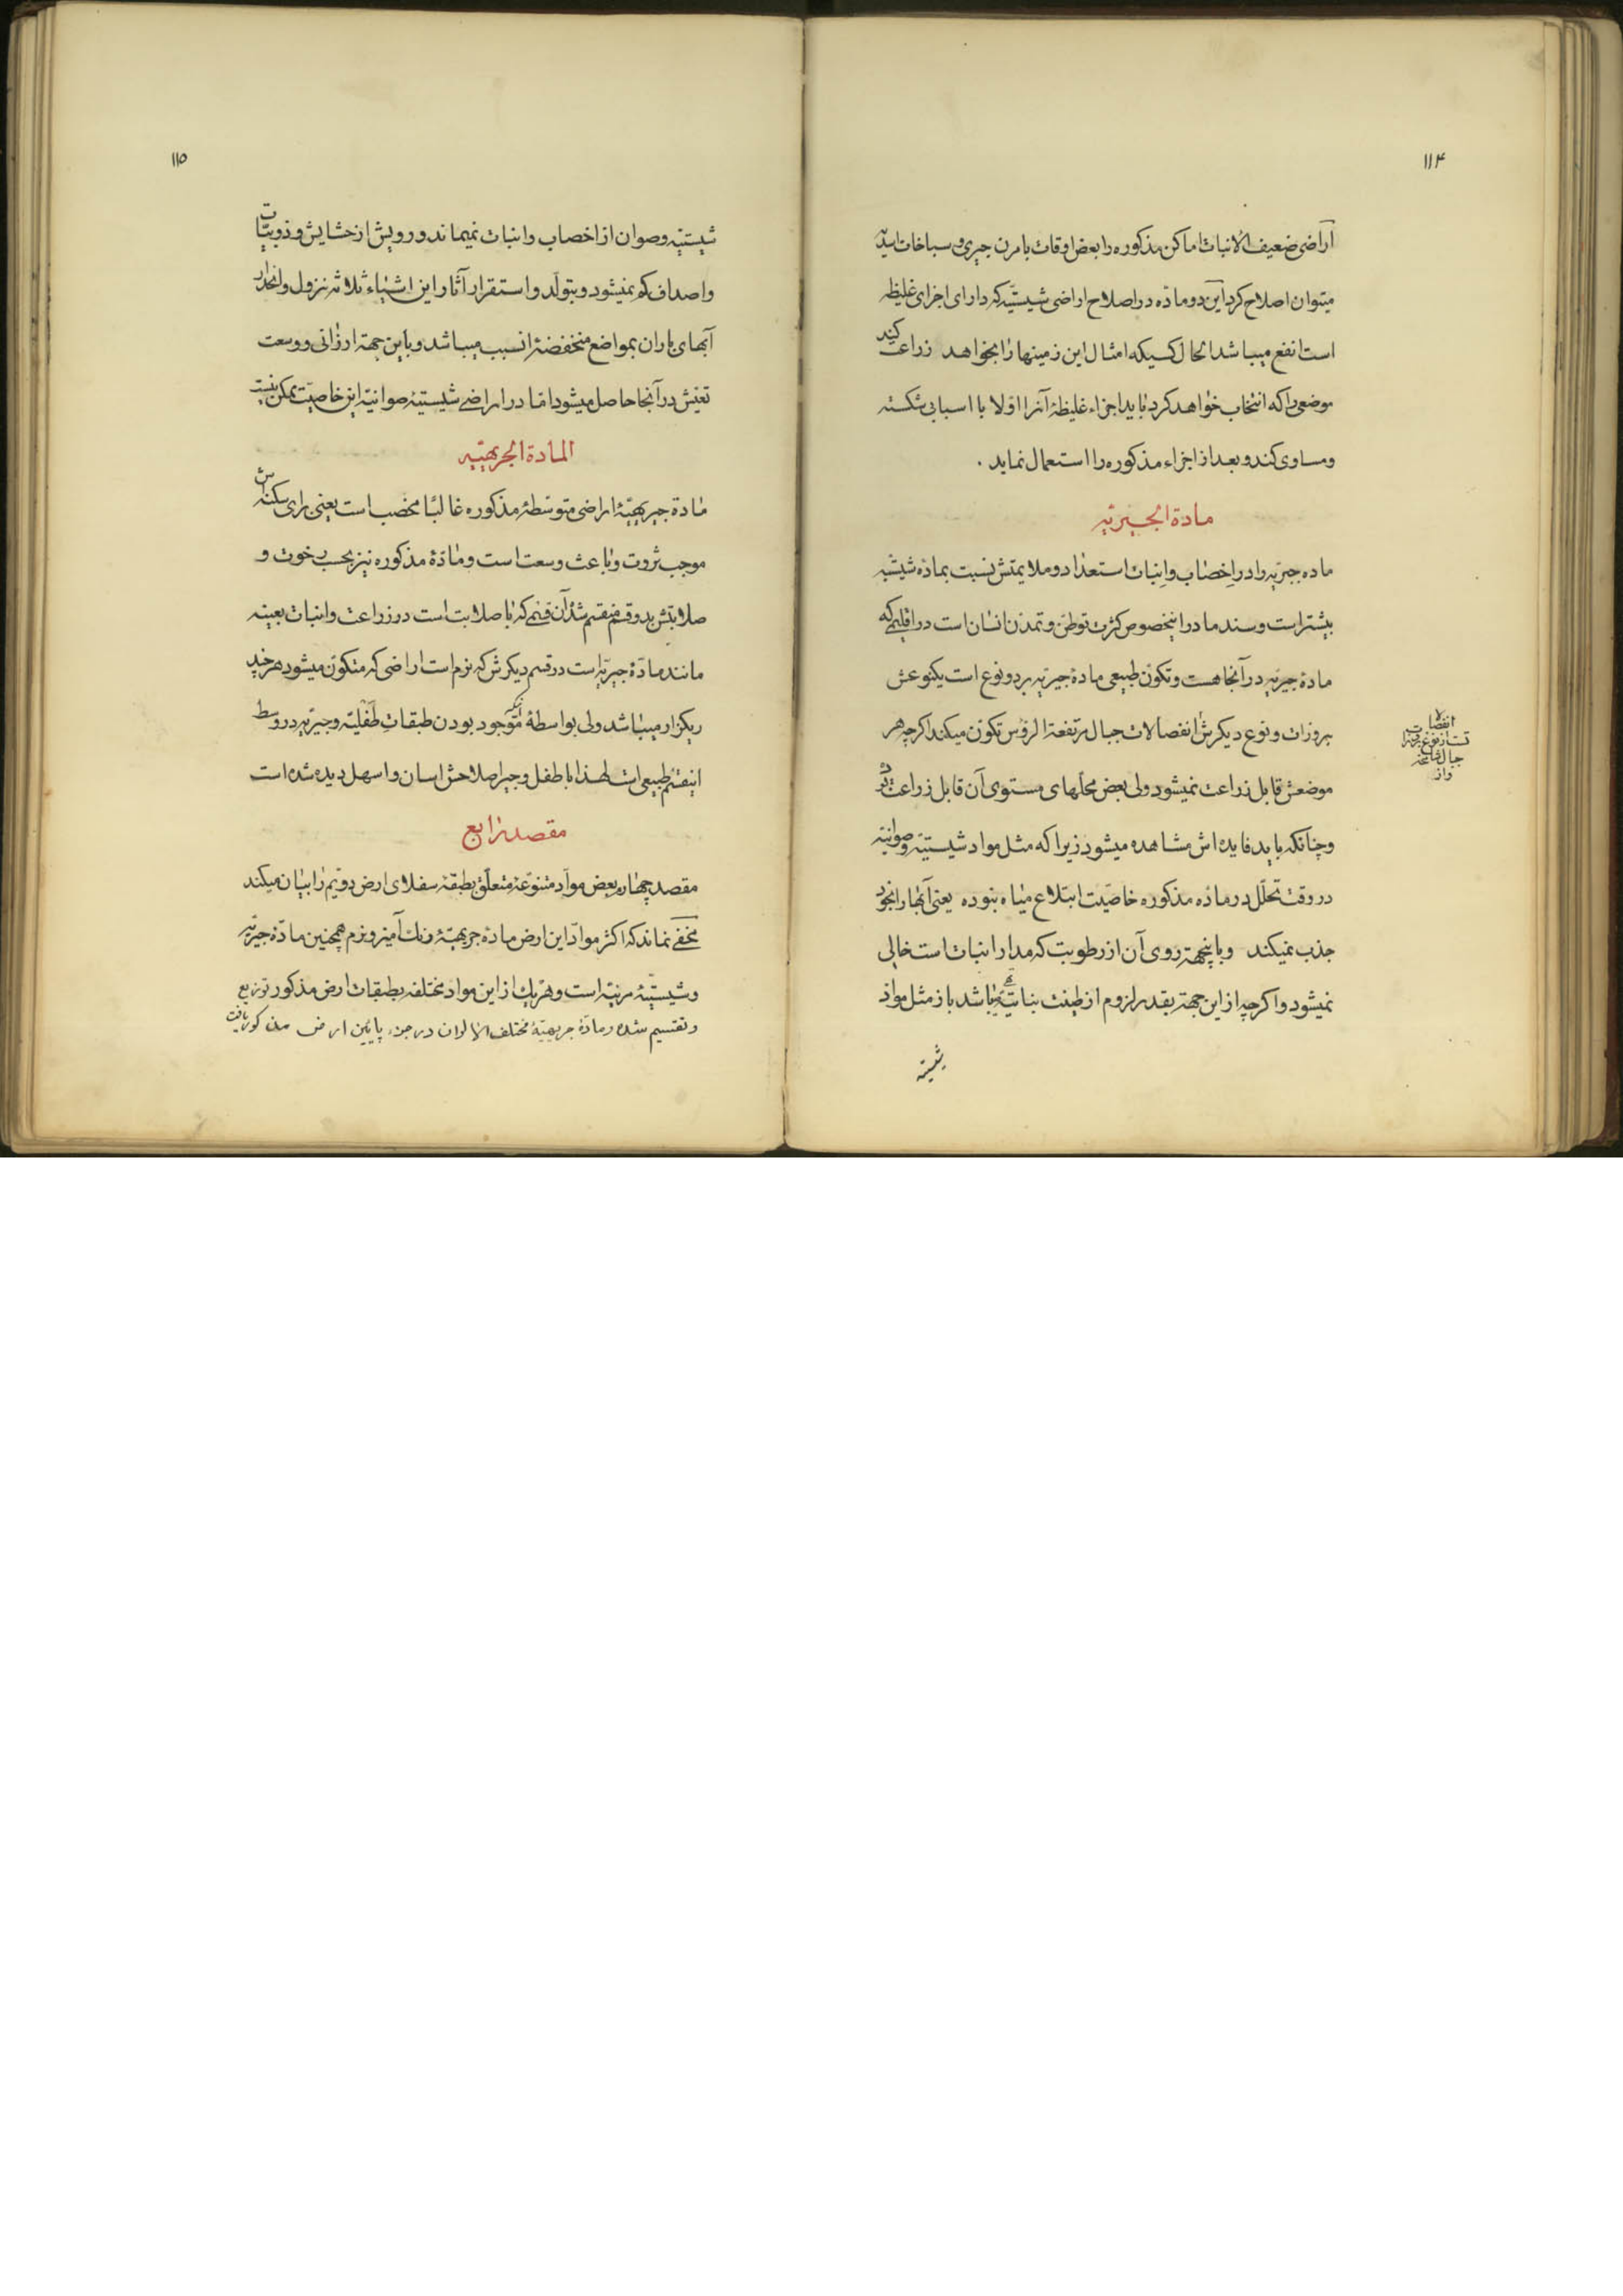 ۱۱۴
آراضی ضعیف الانبات اماکن مذکوره را بعض اوقات با مرن جیری و سباخات ابدیّه
میتوان اصلاح کرد این دو مادّه در اصلاح اراضی شیستیّه که دارای اجزای غلیظه
است انفع میباشد الحال کسیکه امثال این زمینها را بخواهد زراعت کند
موضعی را که انتخاب خواهد کرد باید اجزاء غلیظهٔ آنرا اوّلا با اسبابی شکسته
و مساوی کند و بعد از اجزاء مذکوره را استعمال نماید .
مادة الجیریّه
ماده جیریّه را در اخصاب و انبات استعداد و ملایمتش نسبت بمادّه شیستیّه
بیشتر است و سند ما در اینخصوص کثرت توطّن و تمدّن انسان است در اقلیمی که
مادهٔ جیریّه در آنجا هست و تکوّن طبیعی مادهٔ جیریّه بر دو نوع است یکنوعش
بروزات و نوع دیگرش انفصالات جبال مرتفعة الرؤس تکوّن میکند اگرچه هر
موضعش قابل زراعت نمیشود ولی بعض محلّهای مستوی آن قابل زراعت
و چنانکه باید فایده اش مشاهده میشود زیرا که مثل مواد شیستیّه و صوانیّه
در وقت تحلّل در مادّه مذکوره خاصّیت ابتلاع میاه نبوده یعنی آبها را بخود
جذب نمیکند و باینجهة روی آن از رطوبت که مدار انبات است خالی
نمیشود و اگرچه از این جهة بقدر لزوم از طینت نباتیّهٔ باشد باز مثل موادّ
شیستیّه
انفصالات
جبال
۱۱۵
شیستیّه و صوان از اخصاب و انبات نمیماند و رویش از حشایش و ذوبیّات
و اصداف کم نمیشود و بتولّد و استقرار آثار این اشیاء ثلاثه نزول و انحدار
آبهای باران بمواضع منخفضهٔ انسب میباشد و باین جهة ارزانی و وسعت
تعیّش در آنجا حاصل میشود امّا در اراضی شیستیّه صوانیّه این خاصیّت ممکن نیست
المادة الجربهیّه
مادة جربهیّهٔ اراضی متوسّطهٔ مذکوره غالبًا مخصب است یعنی برای سکنه اش
موجب ثروت و باعث وسعت است و مادّهٔ مذکوره نیز بحسب رخوت و
صلابتش بدو قسم منقسم شد آن قسمی که با صلابت است در زراعت و انبات بعینه
مانند مادّهٔ جیریّه است در قسم دیگرش که نرم است اراضی که متکوّن میشود هر چند
ریگزار میباشد ولی بواسطهٔ موجود بودن طبقات طفلیّه و جیریّه در وسط
اینقسم طبیعی است لهذا با طفل و جیر اصلاحش اسان و اسهل دیده شده است
مقصد رابع
مقصد چهارم بعض موادّ متنوّعهٔ متعلّق بطبقهٔ سفلای ارض دویّم را بیان میکند
مخفی نماند که اکثر موادّ این ارض مادهٔ جربهیّهٔ رنگ آمیز و نرم همچنین مادّهٔ جیریّه
و شیستیّهٔ مرنیّه است و هر یک از این مواد مختلفه بطبقات ارض مذکور توزیع
و تقسیم شده و مادّهٔ جربهیّهٔ مختلف الالوان در جزء پایین ارض مذکور یافت